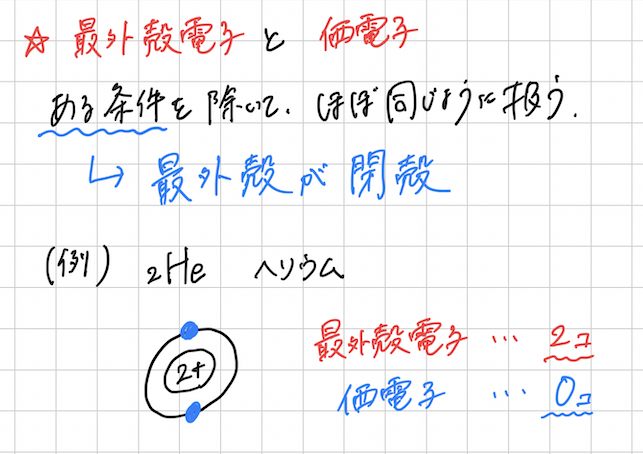 ☆ 最外殻電子と 価電子
ある条件を除いて、ほぼ同じように扱う.
↳ 最外殻が閉殻
(例) ₂He ヘリウム
2+
最外殻電子 … 2コ
価電子 … 0コ